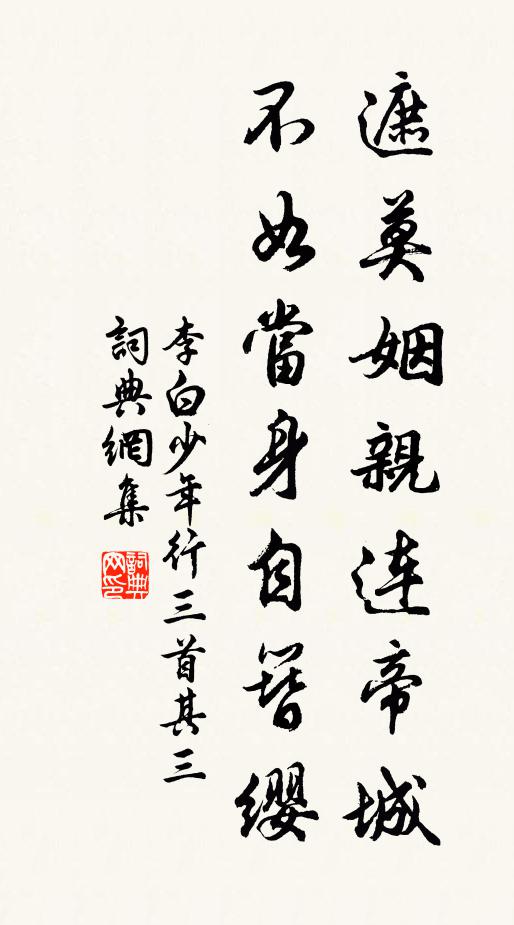 遮莫姻親連帝城
不如當身自簪纓
李白少年行三首其三
詞典網集
詞典
网印